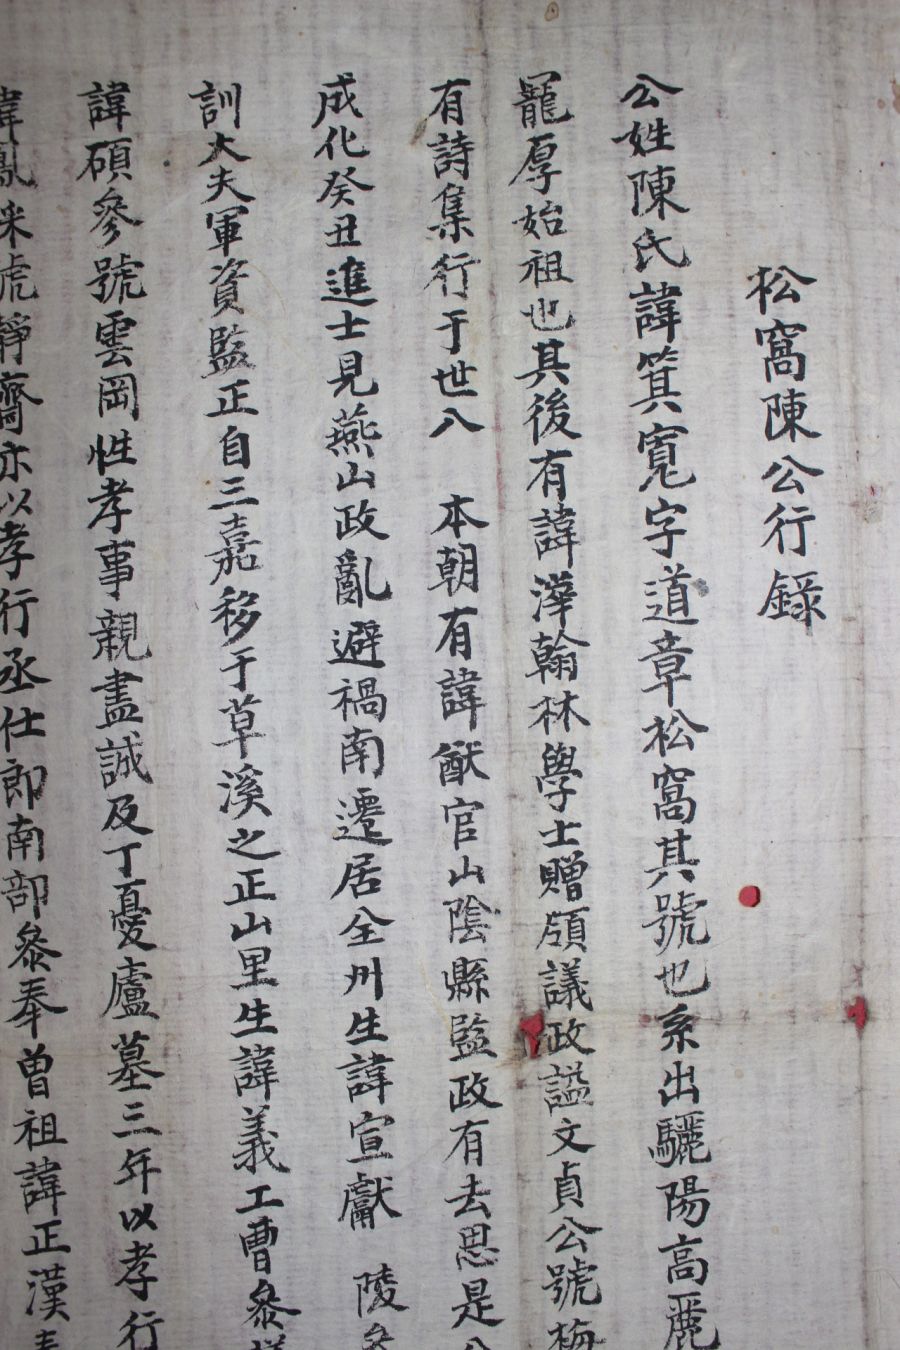 松窩陳公行錄
公姓陳氏諱箕寬字道章松窩其號也系出驪陽高麗
厚始祖也其後有諱澕翰林學士贈領議政謚文貞公號梅
有詩集行于世入 本朝有諱猷官山陰縣監政有去思是
成化癸丑進士見燕山政亂避禍南遷居全州生諱宣獻 陵參
訓大夫軍資監正自三嘉移于草溪之正山里生諱義工曹參
諱碩參號雲岡性孝事親盡誠及丁憂廬墓三年以孝行
諱鳳來號靜齋亦以孝行丞仕郎南部參奉曾祖諱正漢